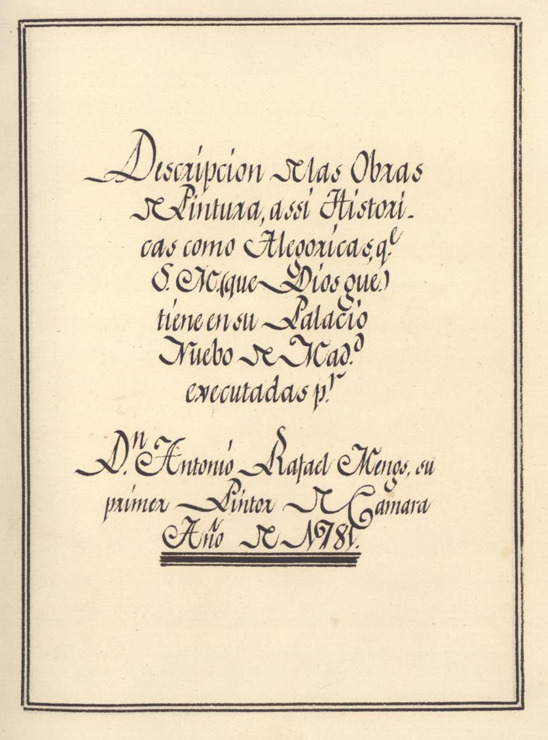 Descripcion de las Obras
de Pintura, assi Histori-
cas como Alegoricas, q.e
S. M. (que Dios gue.)
tiene en su Palacio
Nuebo de Mad.d
executadas p.r
D.n Antonio Rafael Mengs, su
primer Pintor de Camara
Año de 1781.